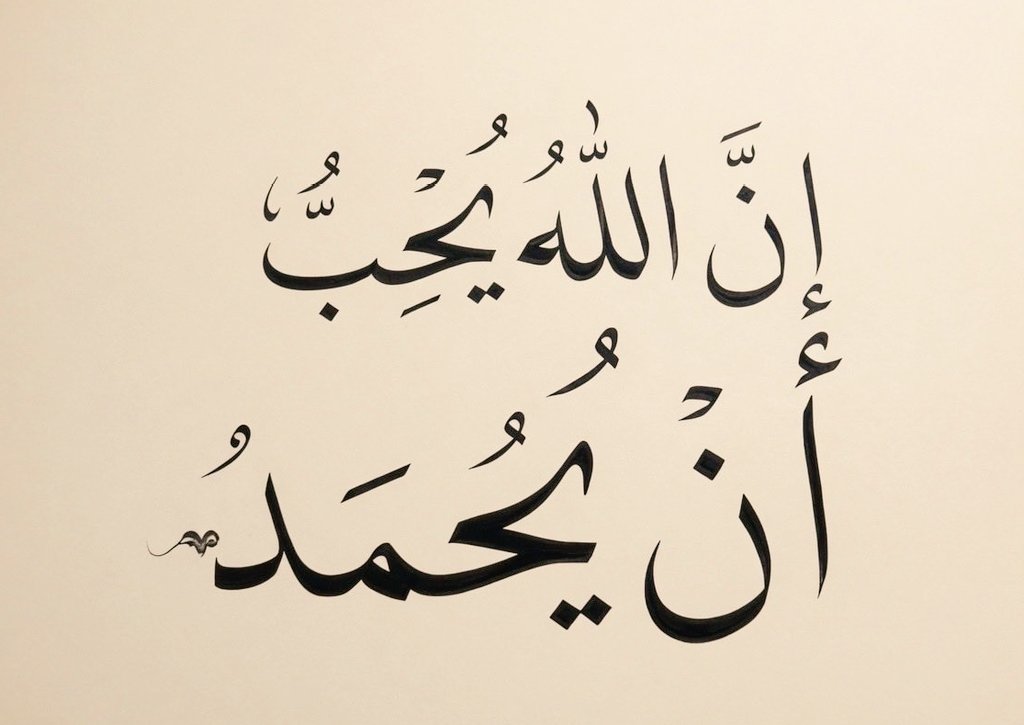 إنَّ اللّٰهُ يُحِبُّ
أنْ يُحُمَدُ